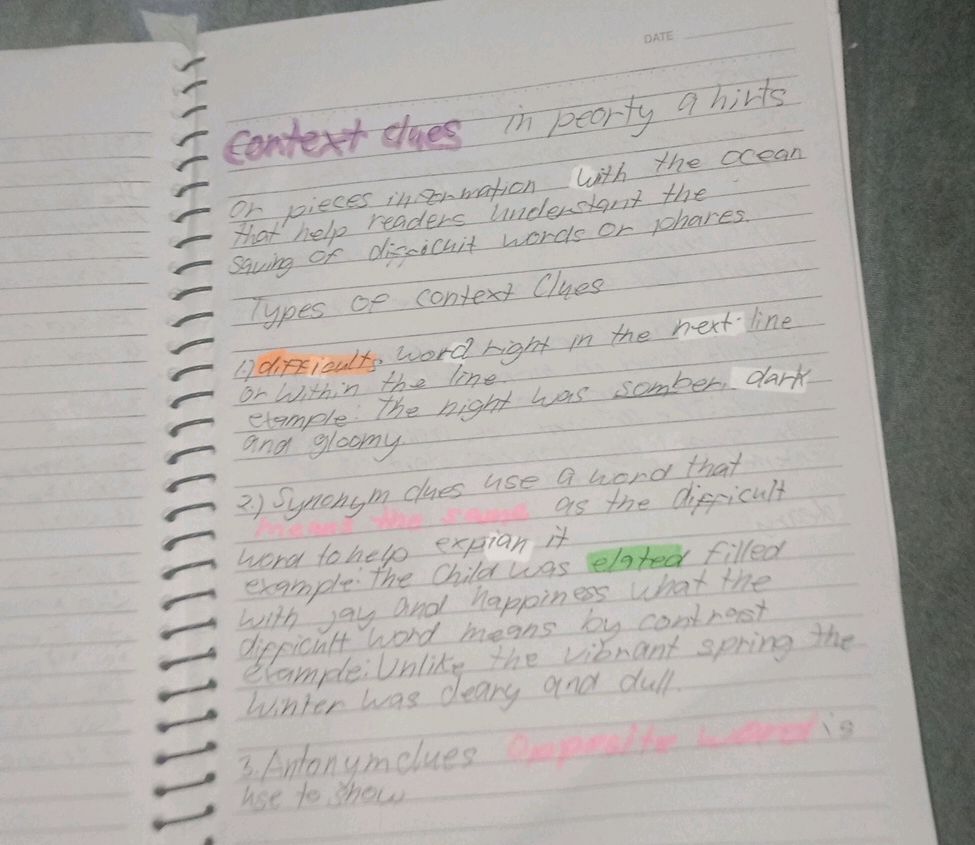 DATE
context clues in peorty a hints
or pieces information with the ocean
that help readers understant the
saving of diffichit words or phares.
Types of context Clues
1.) difficult, word right in the next line
or within the line.
etample: The night was somber, dark
and gloomy
2.) Synonym clues use a word that
means the same as the difficult
word to help expian it
example: the Child was elated filled
with jay and happiness what the
difficult word means by contrast
example: Unlike the vibrant spring the
winter was deary and dull.
3. Antonym clues Opposite word is
use to show